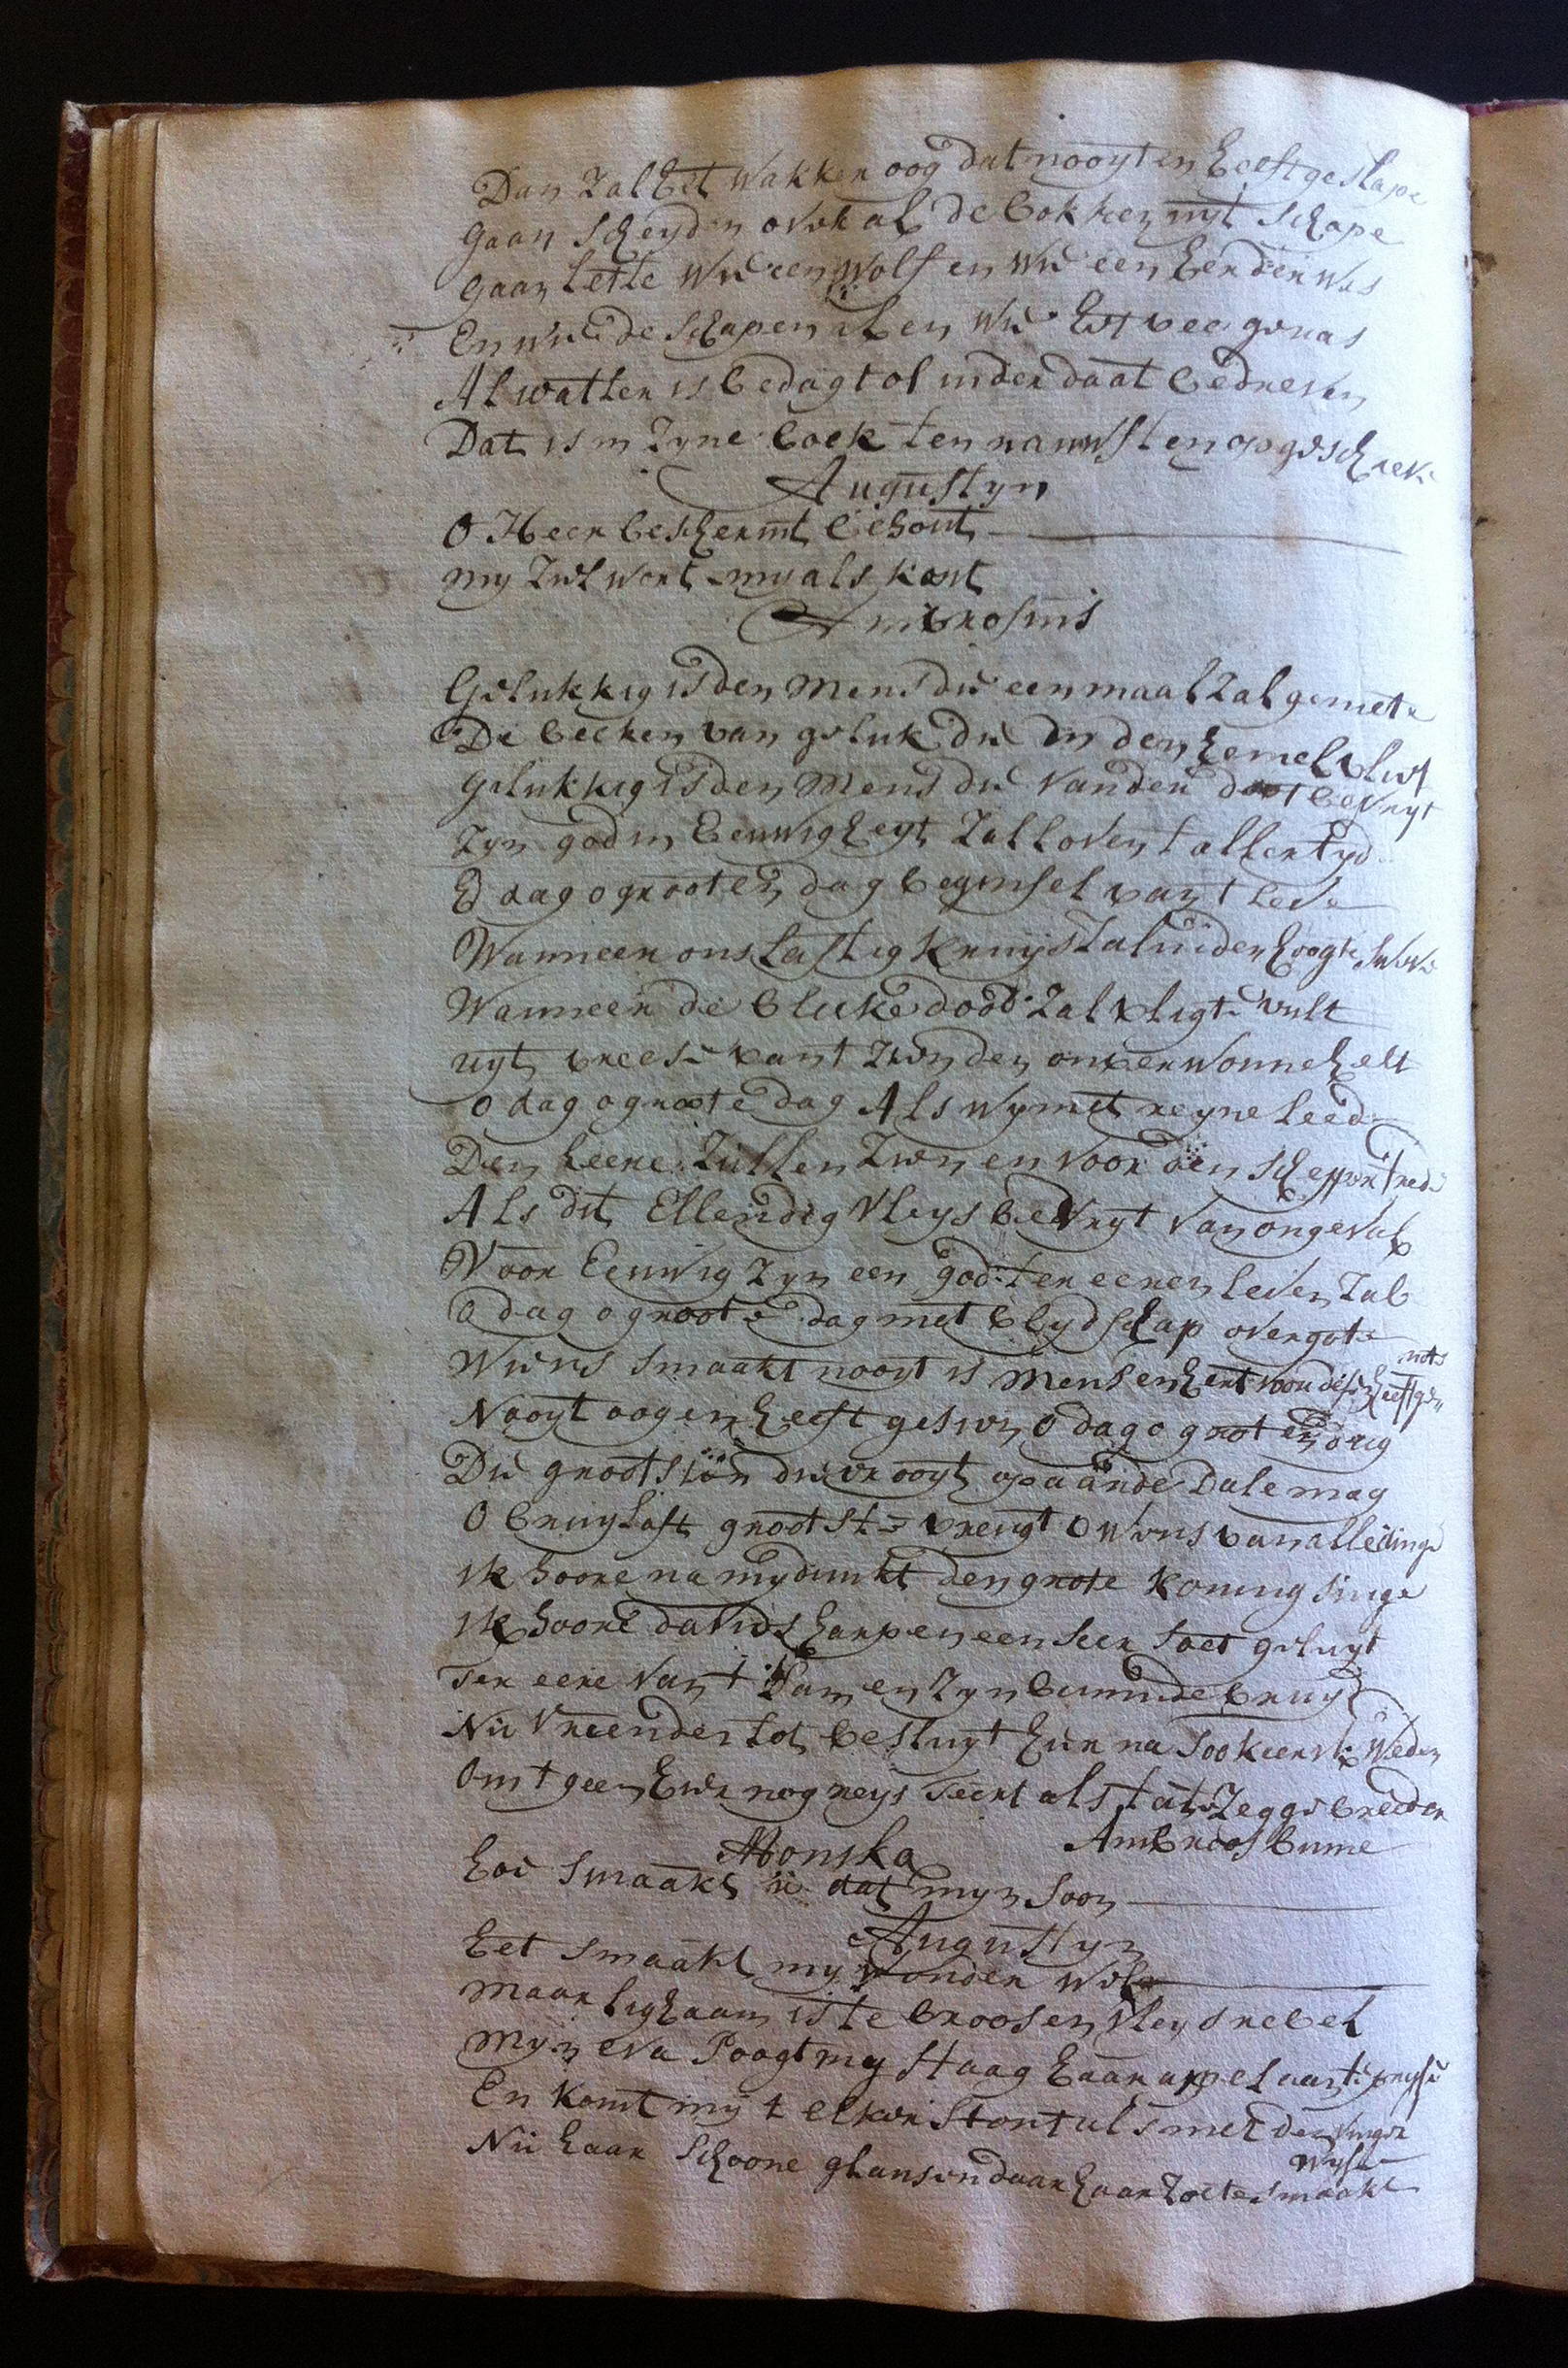 Dan zal het wakker oog dat nooyt en heeft geslape
gaan scheyden over al de bokken uyt schape
gaan lette wie een wolf en wie een herder was
En wie de schapen at en wie het vee genas
Al watter is bedagt of inder daat bedreven
Dat is in zyne boek ten nauwsten opgeschreve
Augustyn
O Heer beschermt behout
my ziel wort my als kout
Ambrosius
Gelukkig is den Mens die eenmaal zal geniete
De beeken van geluk die in den hemel vliet
gelukkig is den Mens die van den doot bevryt
zyn god in Eeuwigheyt zal loven t aller tyd
O dag o grooten dag beginsel van t leve
Wanneer ons lastig kruys zal in der hoogte sweve
Wanneer de bleeke dood zal vligte vult
uyt vreese vant zien den onverwonne helt
o dag o groote dag Als wy met reyne leede
Den heere zullen zien en voor den schepper trede
Als dit Ellendig vleys bevryt van ongeval
Voor Eeuwig zyn een god ter eeren leven zal
O dag o groote dag met blydschap overgote
Wiens smaakt nooyt is Mensen hert voor dese heeft genote
Nooyt oog en heeft gesien O dag o groten dag
Die grootsten die vrooyt op aarde Dale mag
O bruyloft grootste vreugt o wens van alle dinge
ik hoore na my dunkt den grote koning singe
ik hoore davids harpen een seer soet geluyt
Ter eere van t Lam en zyn beminde bruyt
Nu vrienden tot besluyt hier na soo keer ik weder
Om t geen hier nog reys veert als tate zegge breeder
Ambroos bume
Monika
hoe smaakt u dat myn soon
Augustyn
het smaakt my wonder wel
maar lighaam is te broos en vleys rebel
Myn eva Poogt my staag haar appel aan te pryse
En komt my t elker stont als met den vinger wyse
Nu haar schoone glansen daar haar zoete smaakt